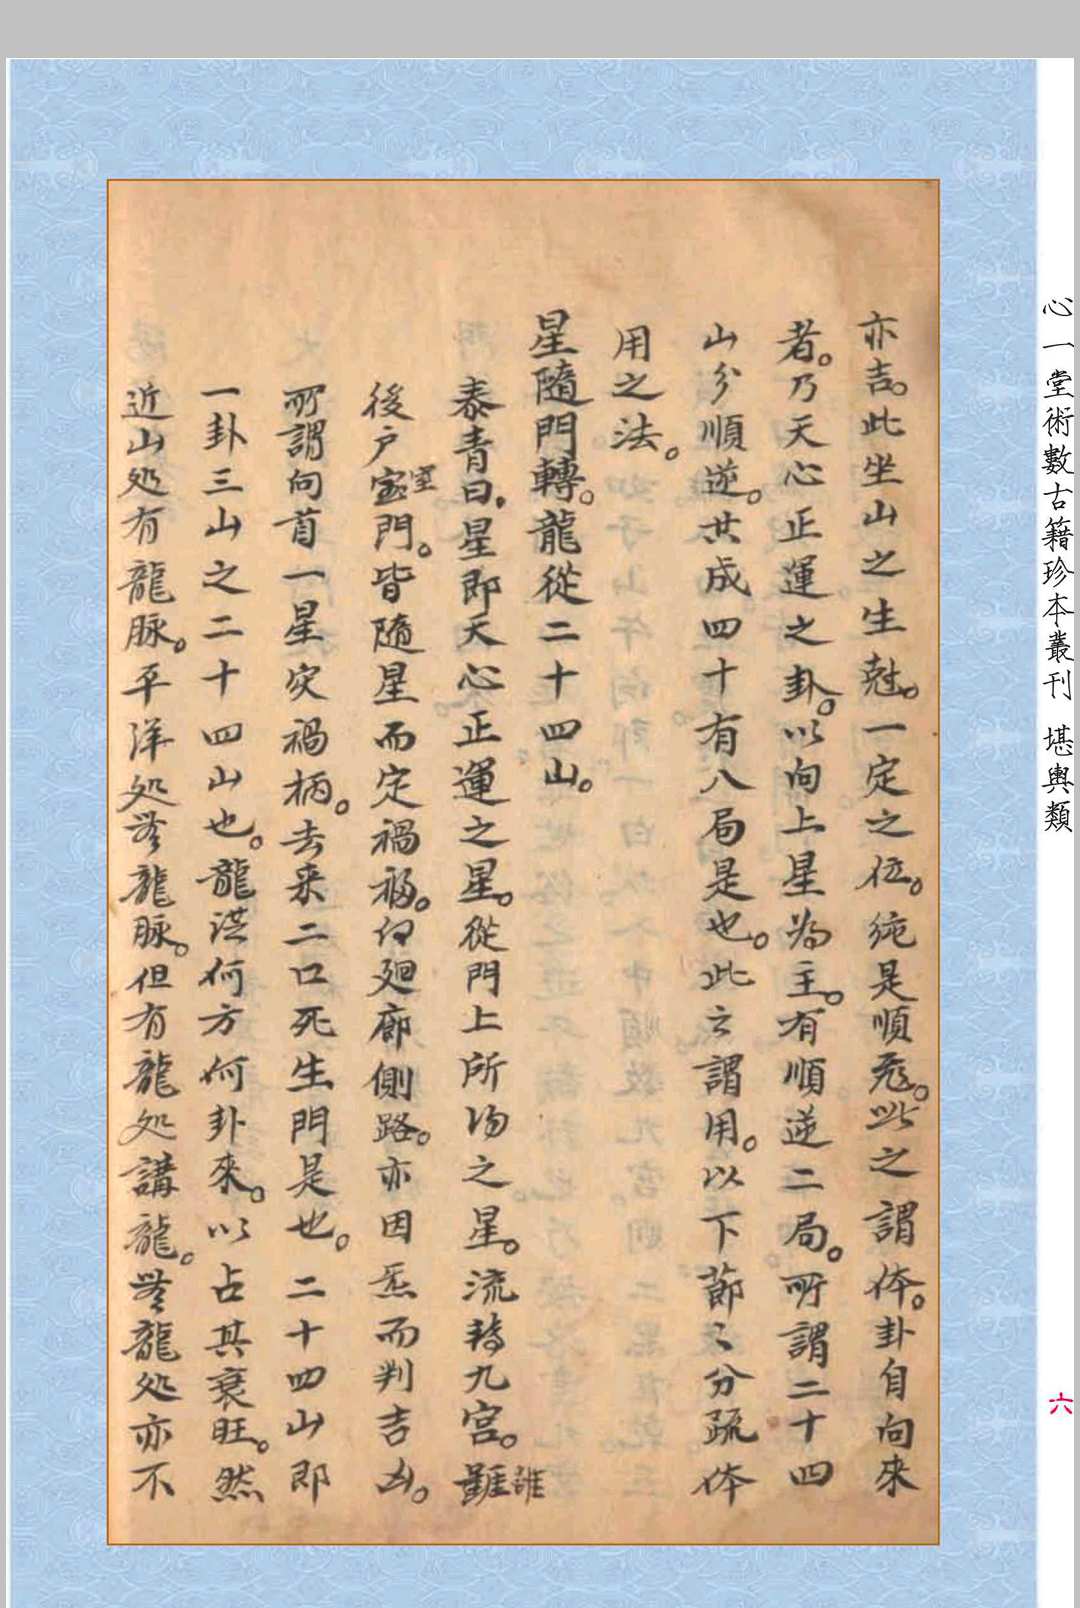 亦吉。此坐山之生尅。一定之位。純是順飛。此之謂体。卦自向來
者。乃天心正運之卦。以向上星為主。有順逆二局。所謂二十四
山分順逆。共成四十有八局是也。此之謂用。以下節々分疏体
用之法。
星隨門轉。龍從二十四山。
泰青曰。星即天心正運之星。從門上所得之星。流轉九宮。雖
誰
後户室門。皆隨星而定禍福。仅廻廊側路。亦因炁而判吉凶。
室
所謂向首一星灾禍柄。去来二口死生門是也。二十四山即
一卦三山之二十四山也。龍從何方何卦來。以占其衰旺。然
近山处有龍脉。平洋处無龍脉。但有龍处講龍。無龍处亦不
心一堂術數古籍珍本叢刊 堪輿類
六